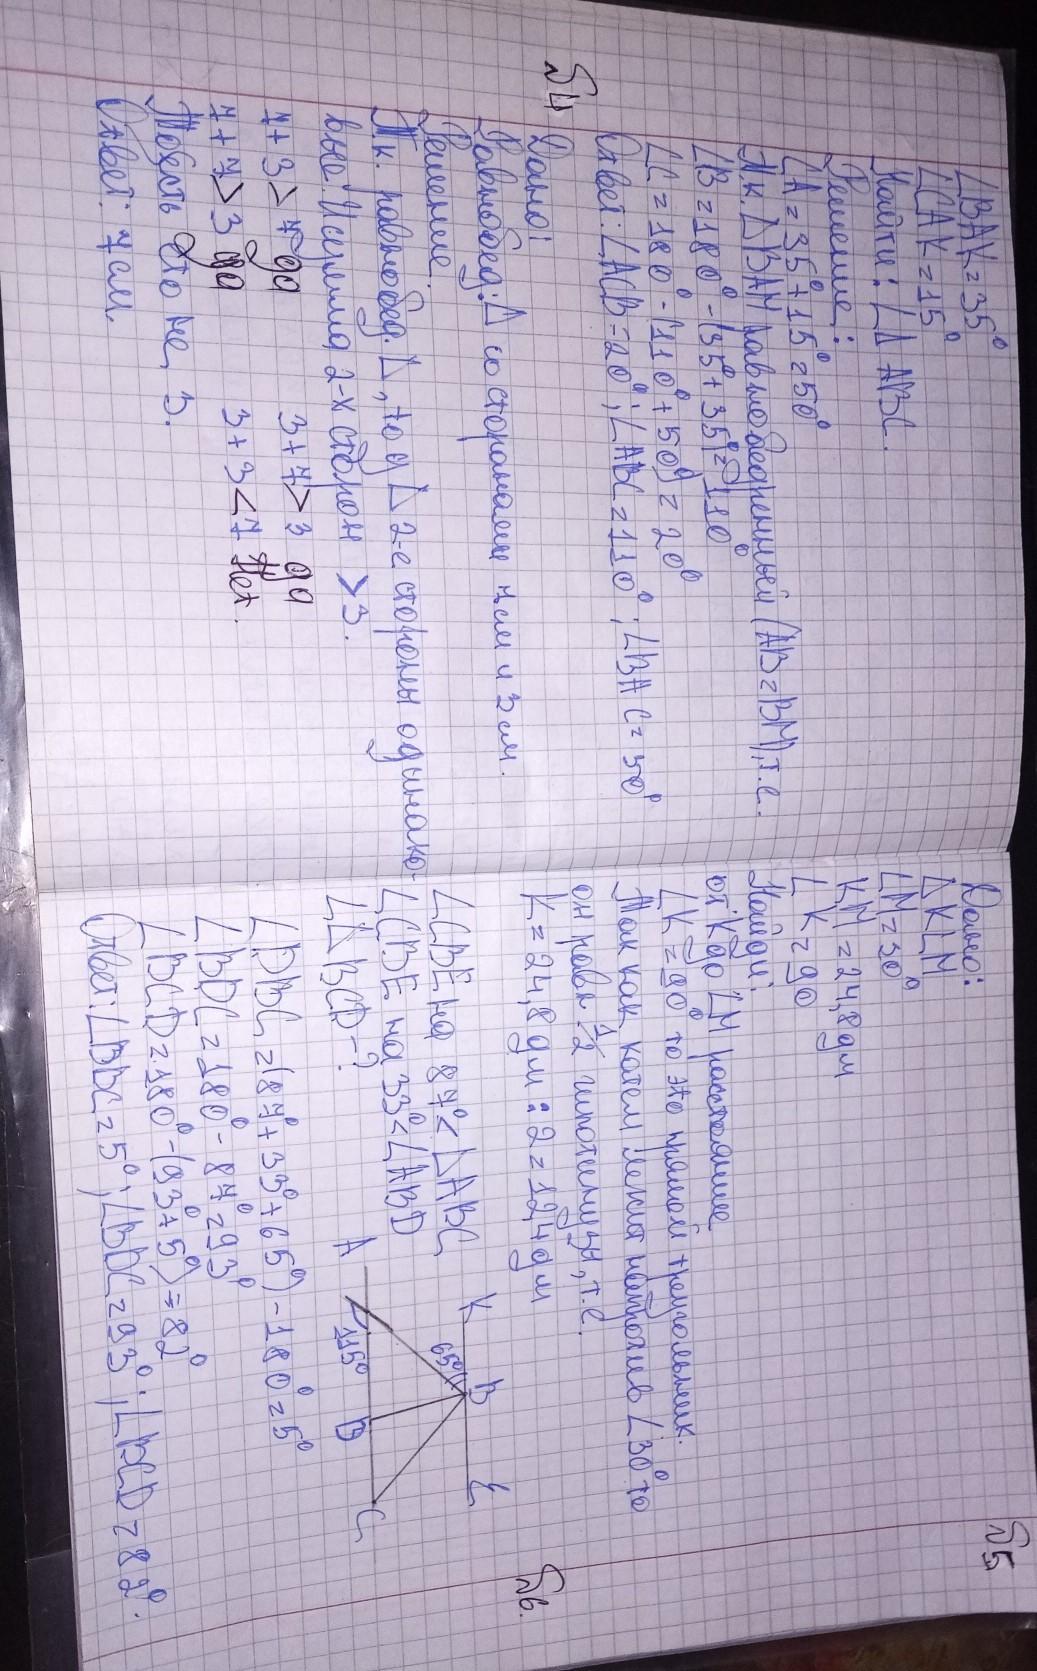 ∠BAK=35°
∠CAK=15°
Найти: ∠Δ ABC.
Решение:
∠A=35°+15°=50°
Т.к. ΔBAM равнобедренный (AB=BM), т.е.
∠B=180°-(35°+35°)=110°
∠C=180°-(110°+50°)=20°
Ответ: ∠ACB=20°; ∠ABC=110°; ∠BAC=50°
№4
Дано:
Равнобед. Δ со сторонами 7см и 3см.
Решение.
Т.к. равнобед. Δ, то у Δ 2-е стороны одинако-
вые. И сумма 2-х сторон > 3.
7+3>7 да 3+7>3 да
7+7>3 да 3+3<7 Нет.
Тоесть это не 3.
Ответ: 7см.
№5
Дано:
ΔKLM
∠M=30°
KM=24,8дм
∠K=90
Найди:
от K до LM расстояние
∠K=90° то это прямой треугольник.
Так как катет лежит напротив ∠30° то
он равен 1/2 гипотенузы, т.е.
K=24,8дм:2=12,4дм
№6.
∠CBE на 87°<∠ABC
∠CBE на 33°<∠ABD
∠ΔBCD-?
K B E
65°
A 115° D C
∠DBC=(87°+33°+65°)-180°=5°
∠BDC=180°-87°=93°
∠BCD=180°-(93°+5°)=82°
Ответ: ∠DBC=5°; ∠BDC=93°; ∠BCD=82°.